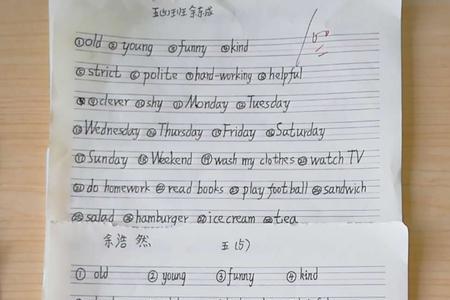 ①old ② young ③funny ④kind
⑤strict ⑥ polite ⑦hard-working ⑧helpful
⑨clever ⑩shy ⑪Monday ⑫Tuesday
⑬Wednesday ⑭Thursday ⑮Friday ⑯Saturday
⑰Sunday ⑱Weekend ⑲wash my clothes ⑳watch TV
㉑do homework ㉒read books ㉓play football ㉔sandwich
㉕salad ㉖hamburger ㉗ice cream ㉘tea
余浩然 五(5)
① old ② young ③funny ④ kind